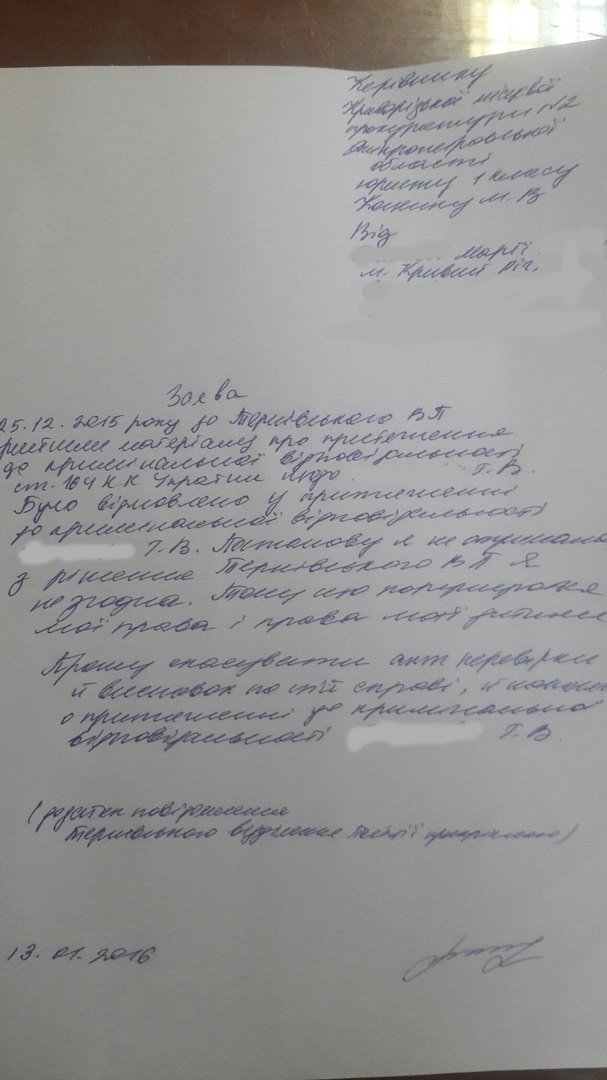 Керівнику
Криворізької місцевої
прокуратури №2
Дніпропетровської
області
юристу 1 класу
М. В
Від
Марії
м. Кривий ріг,
Заява
25.12.2015 року до Тернівського ВП
матеріали про притягнення
до кримінальної відповідальності
ст. 164 КК України щодо Т. В.
Було відмовлено у притягненні
до кримінальної відповідальності
Т. В. Постанову я не отримала
з рішення Тернівського ВП я
не згодна. Тому що
мої права і права моєї дитини
Прошу скасувати акт перевірки
й висновок по цій справі, й
о притягненні до кримінальної
відповідальності Т. В.
(додаток повідомлення
Тернівського відділення поліції прикріплено)
13.01.2016